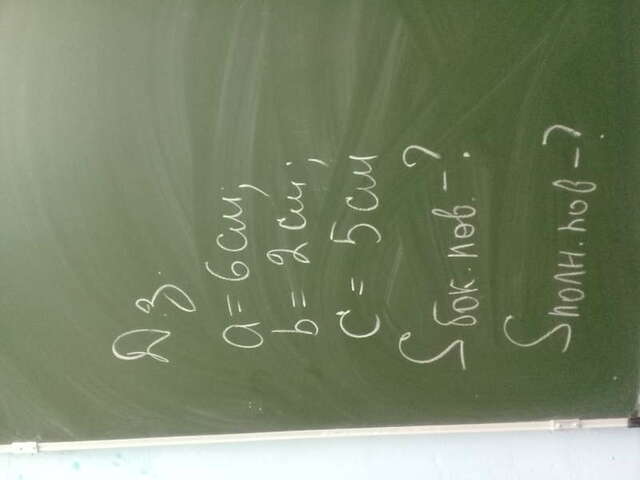 Д.з.
a = 6 см;
b = 2 см;
c = 5 см
S бок. пов. - ?
S полн. пов - ?